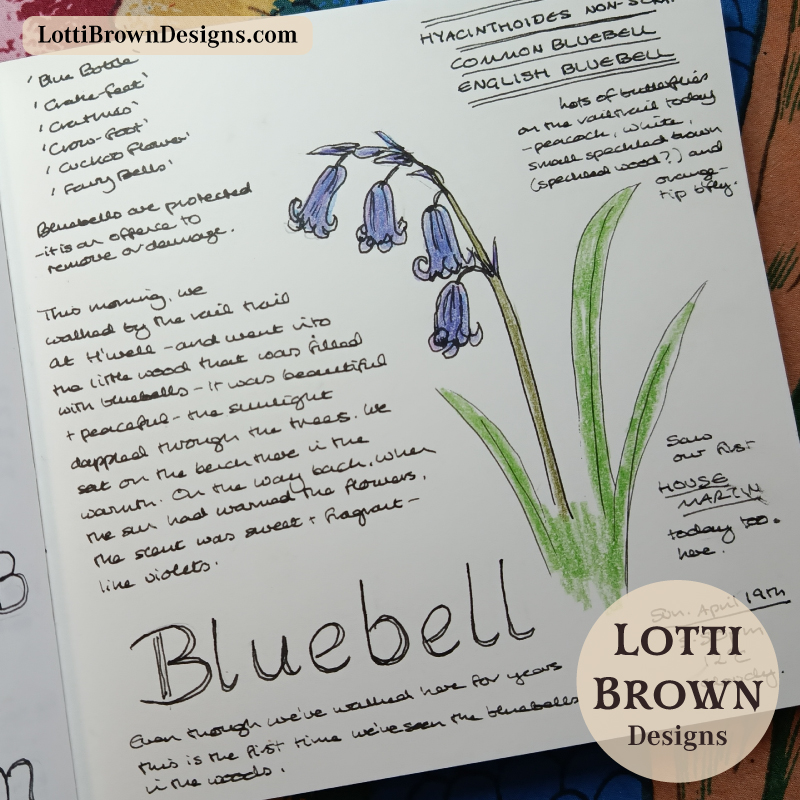 LottiBrownDesigns.com
HYACINTHOIDES NON-SCRIP
COMMON BLUEBELL
ENGLISH BLUEBELL
'Blue Bottle'
'Crake-feet'
'Crow-foot'
'Cuckoo Flower'
'Fairy Bells'
Bluebells are protected
-it is an offence to
remove or damage.
hots of butterflies
on the railtrail today
-peacock, white,
small speckled brown
(speckled wood?) and
orange-
tip b'fly.
This morning, we
walked by the rail trail
at H'well - and went into
the little wood that was filled
with bluebells - it was beautiful
+ peaceful - the sunlight
dappled through the trees. We
sat on the bench there in the
warmth. On the way back, when
the sun had warmed the flowers,
the scent was sweet + fragrant -
like violets.
Saw
our first
HOUSE
MARTIN
today too.
here.
Bluebell
Sun. April 19th
Even though we've walked here for years
this is the first time we've seen the bluebells
in the woods.
LOTTI
BROWN
Designs